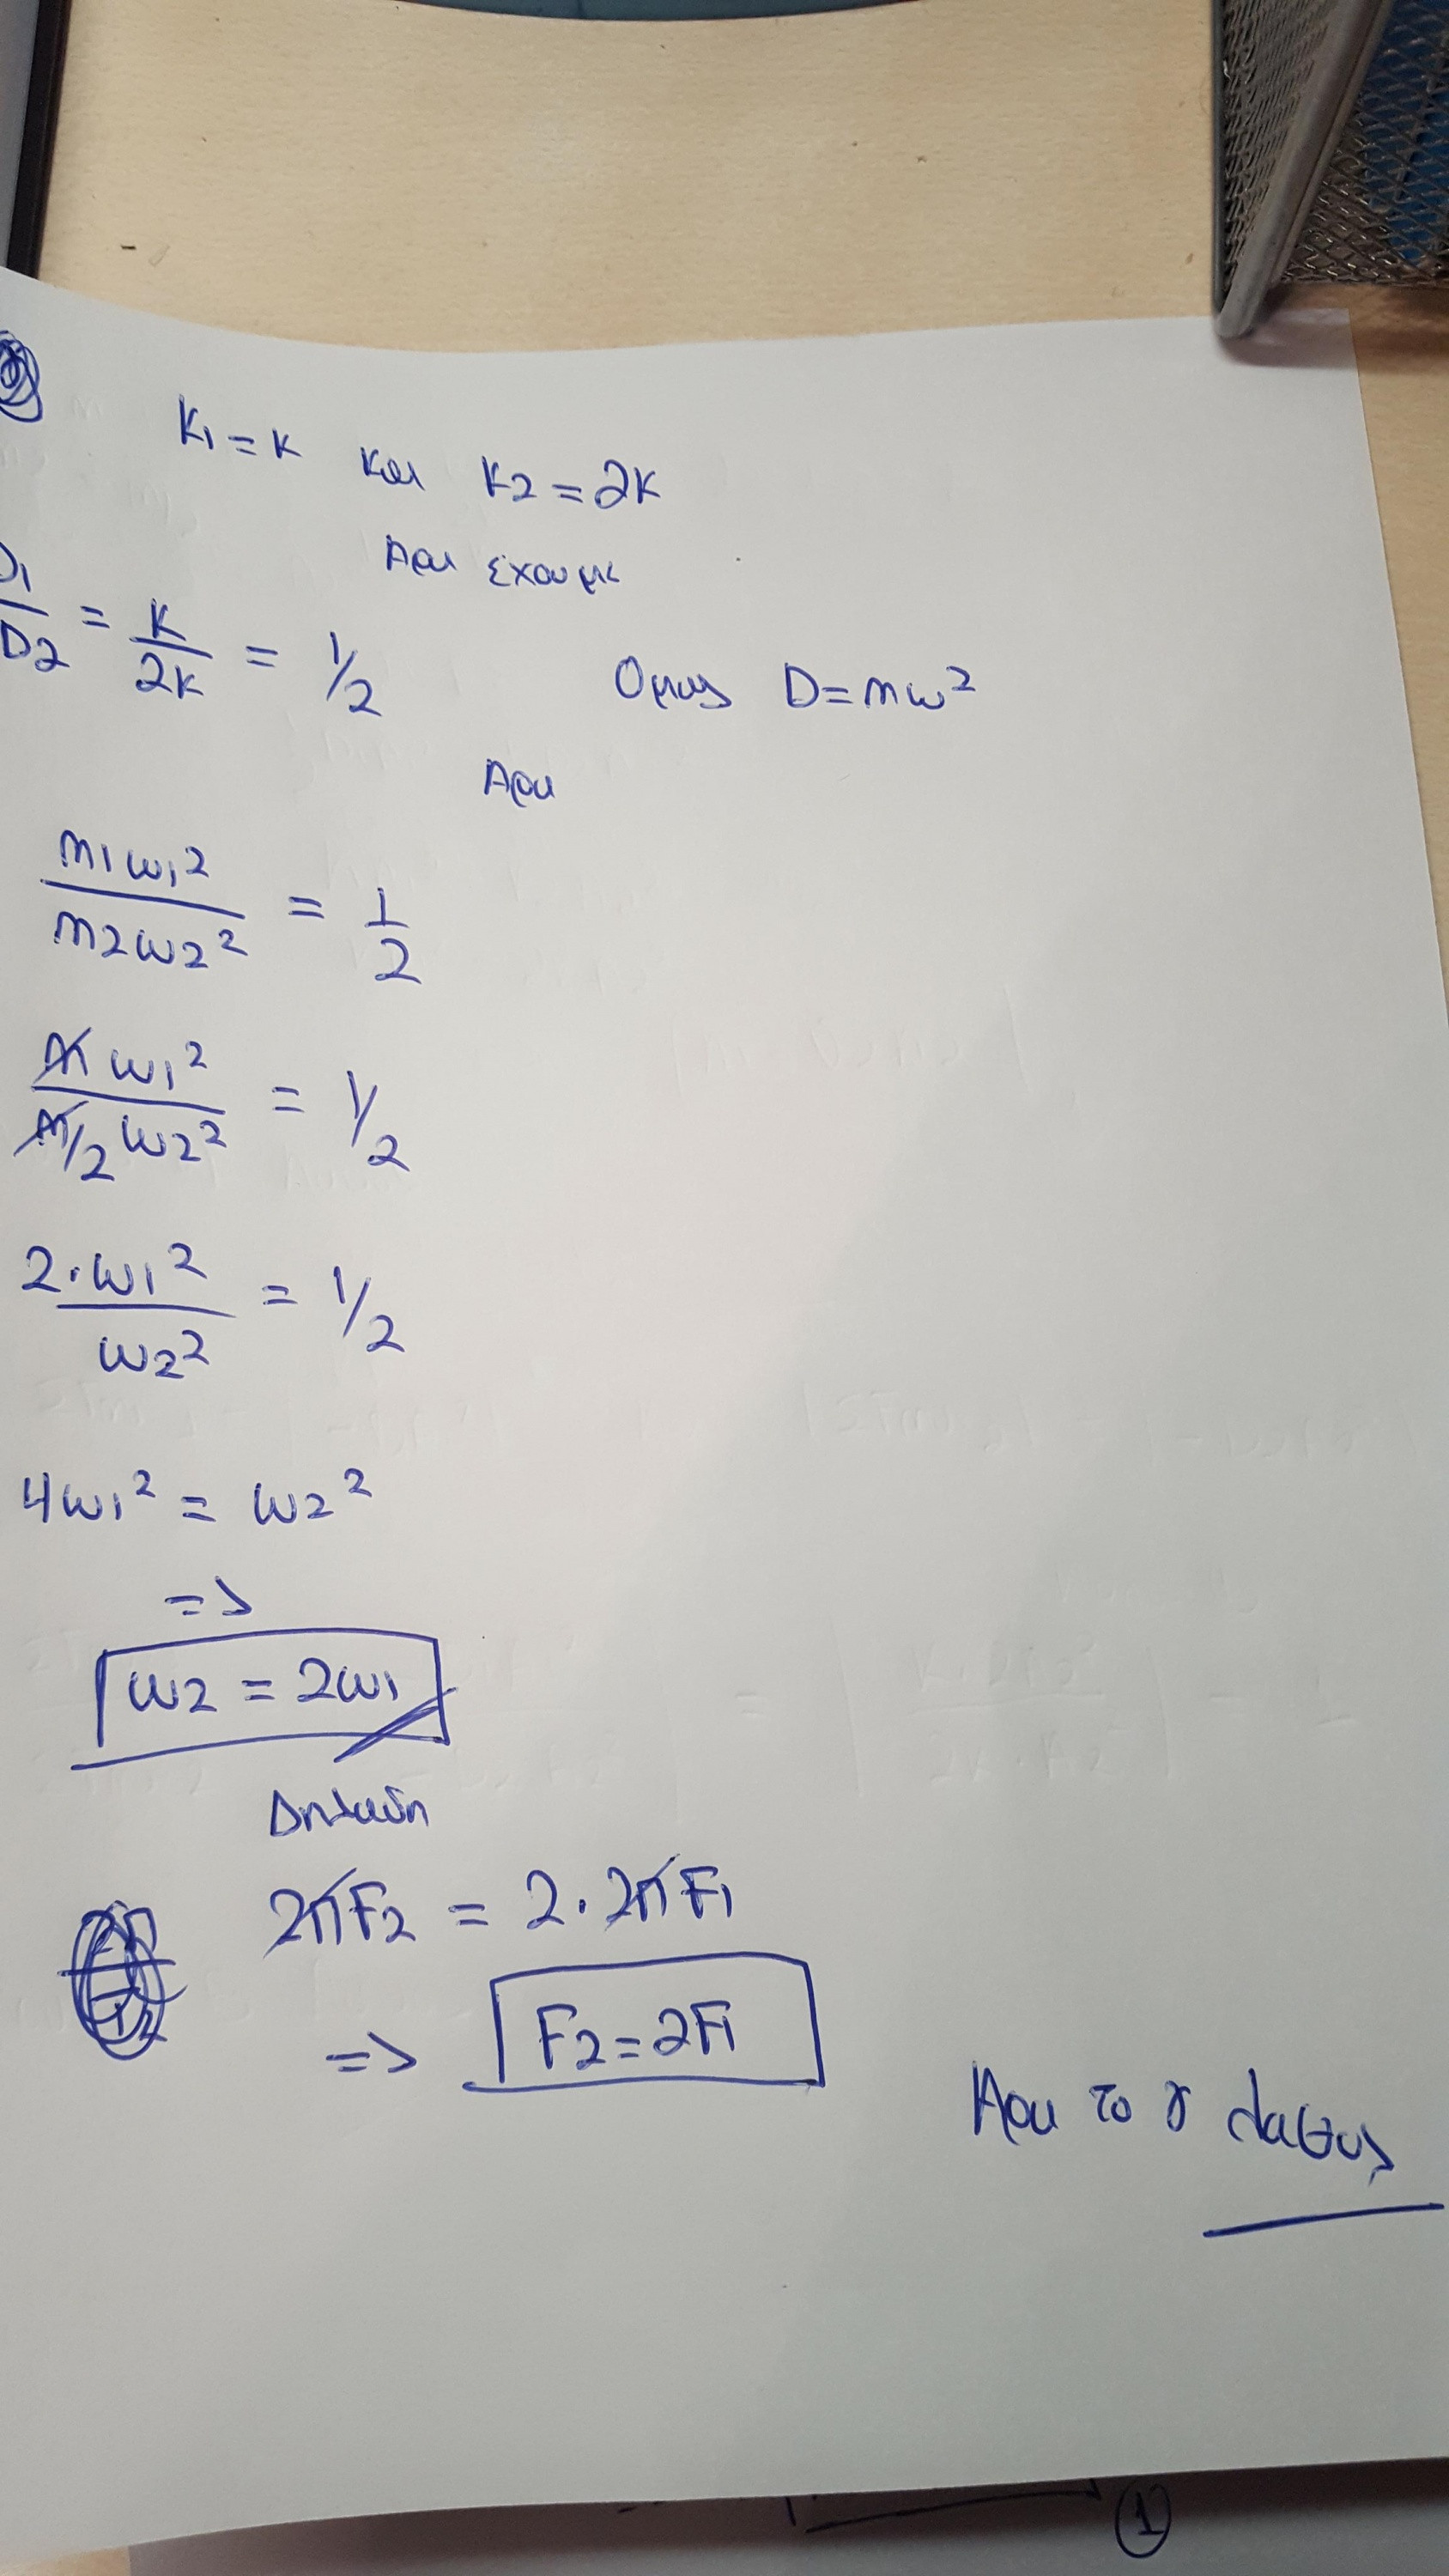 K1 = K και K2 = 2K
Αρα εχουμε
D1/D2 = K/2K = 1/2 Ομως D = mω²
Αρα
m1ω1²/m2ω2² = 1/2
m ω1²/m/2 ω2² = 1/2
2·ω1²/ω2² = 1/2
4ω1² = ω2²
=>
ω2 = 2ω1
Δηλαδη
2πF2 = 2·2πF1
=> F2 = 2F1
Αρα το γ λαθος
1